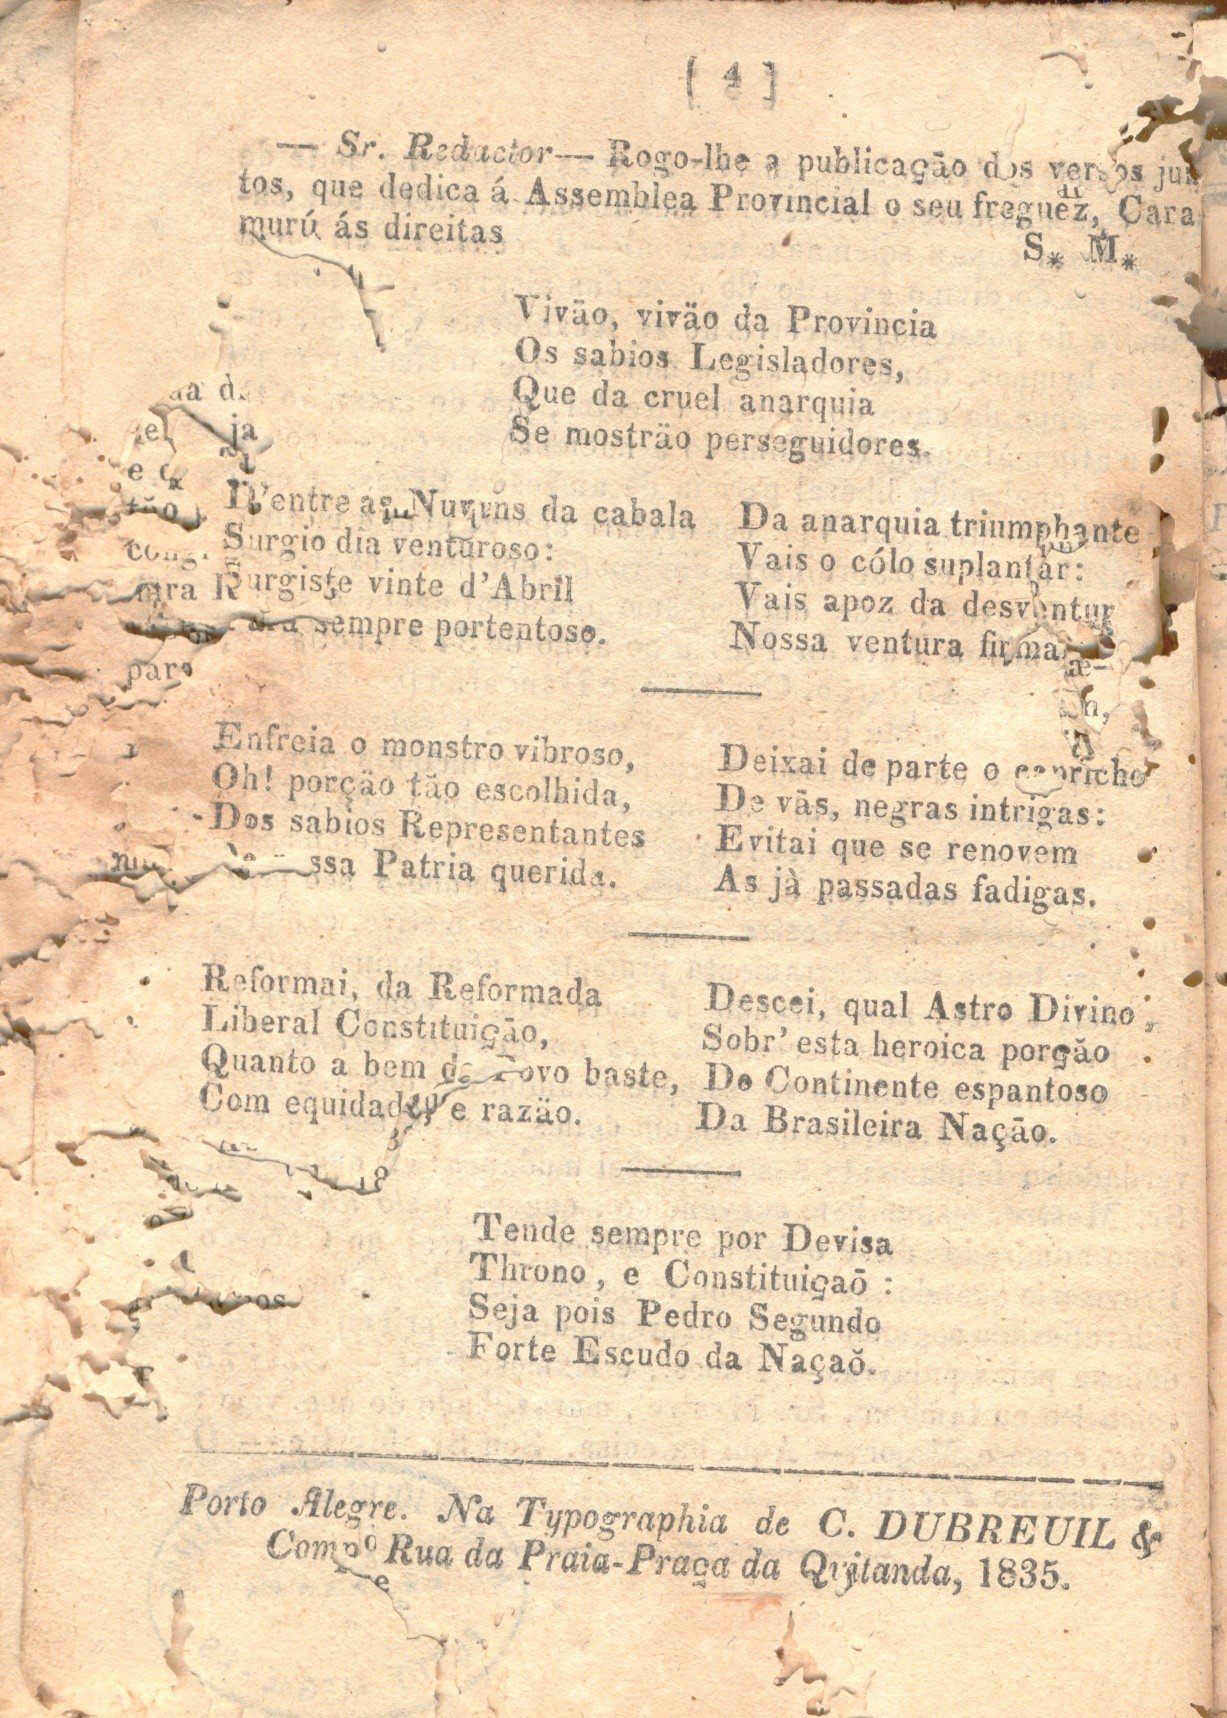 [ 4 ]
— Sr. Redactor— Rogo-lhe a publicação dos versos jun
tos, que dedica á Assemblea Provincial o seu freguez, Cara
murú ás direitas
S* M*
Vivão, vivão da Provincia
Os sabios Legisladores,
Que da cruel anarquia
Se mostrão perseguidores.
D'entre as Nuvens da cabala
Surgio dia venturoso:
Surgiste vinte d'Abril
sempre portentoso.
Da anarquia triumphante
Vais o cólo suplantar:
Vais apoz da desventur
Nossa ventura firma
Enfreia o monstro vibroso,
Oh! porção tão escolhida,
Dos sabios Representantes
ssa Patria querida.
Deixai de parte o capricho
De vãs, negras intrigas:
Evitai que se renovem
As jà passadas fadigas.
Reformai, da Reformada
Liberal Constituição,
Quanto a bem do Povo baste,
Com equidade, e razão.
Descei, qual Astro Divino,
Sobr' esta heroica porção
Do Continente espantoso
Da Brasileira Nação.
Tende sempre por Devisa
Throno, e Constituiçaõ:
Seja pois Pedro Segundo
Forte Escudo da Naçaõ.
Porto Alegre. Na Typographia de C. DUBREUIL &
Comp.º Rua da Praia-Praça da Quitanda, 1835.